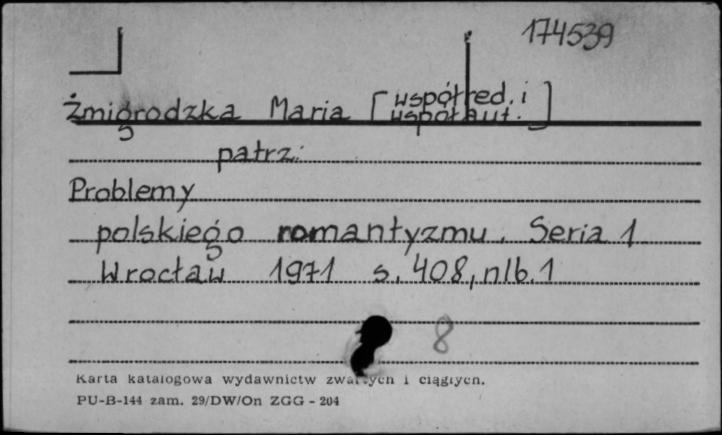 174539
Żmigrodzka Maria [współred. i
współaut.]
patrz:
Problemy
polskiego romantyzmu. Seria 1
Wrocław 1971 s. 408, nlb. 1
8
Karta katalogowa wydawnictw zwartych i ciągłych.
PU-B-144 zam. 29/DW/On ZGG - 204